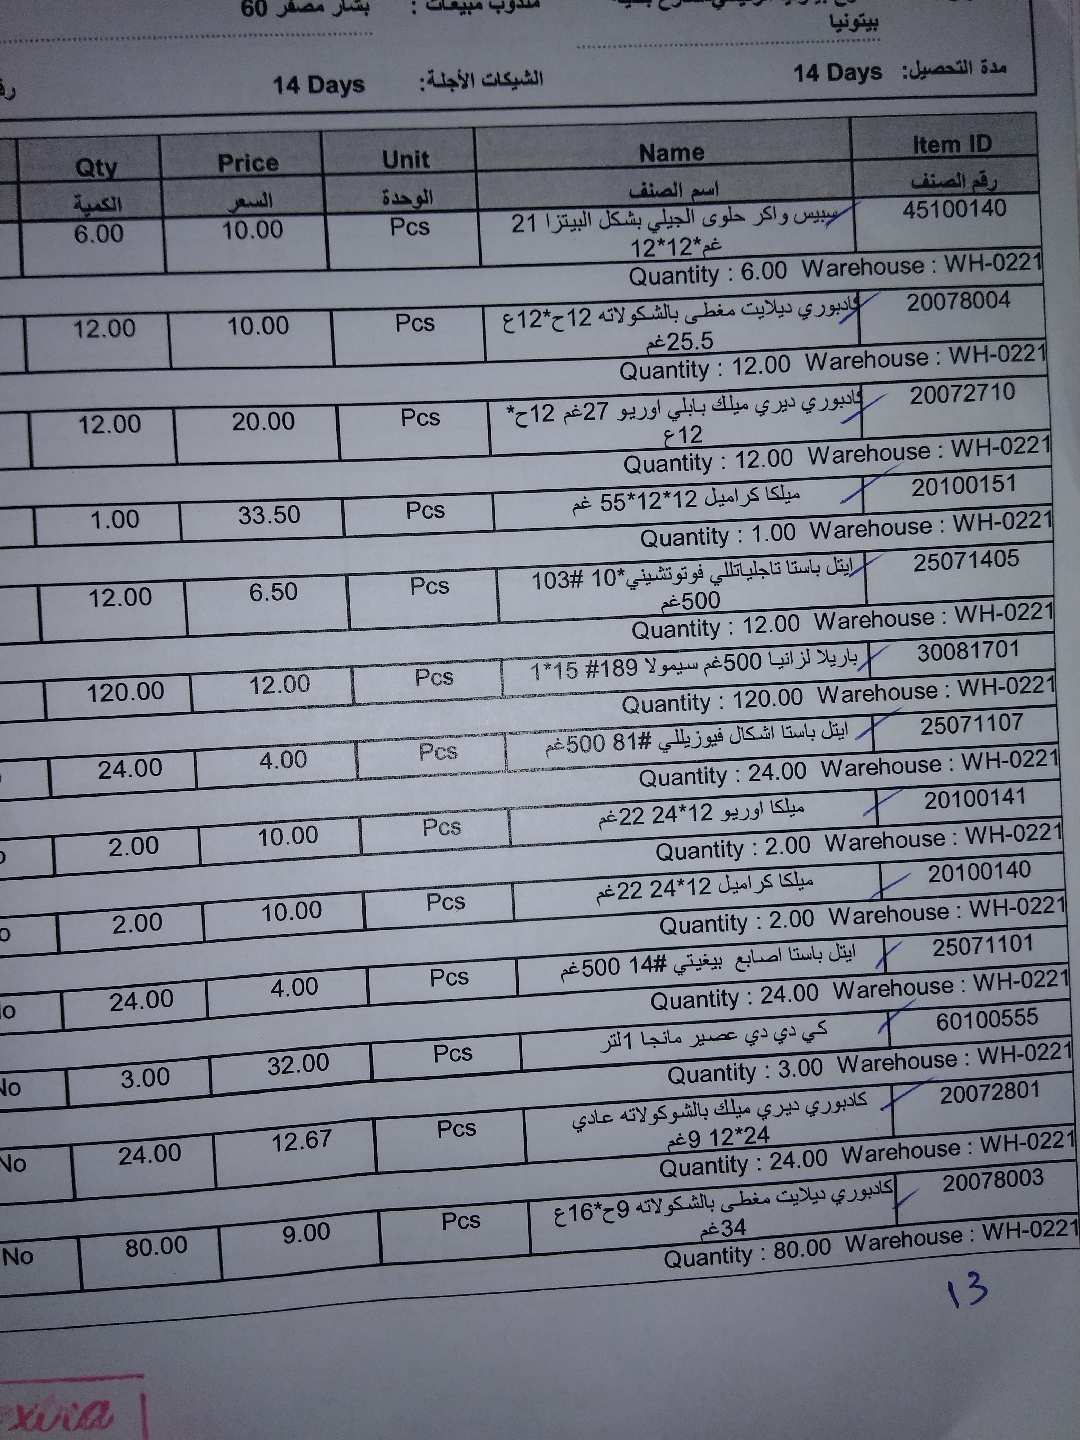 مندوب مبيعات : بشار مصفر 60
بيتونيا
مدة التحصيل: 14 Days الشيكات الآجلة: 14 Days
Item ID Name Unit Price Qty
رقم الصنف اسم الصنف الوحدة السعر الكمية
45100140 سبيس واكر حلوى الجيلي بشكل البيتزا 21 Pcs 10.00 6.00
غم*12*12
Quantity : 6.00 Warehouse : WH-0221
20078004 كادبوري ديلايت مغطى بالشكولاته 12ح*12ع Pcs 10.00 12.00
25.5غم
Quantity : 12.00 Warehouse : WH-0221
20072710 كادبوري ديري ميلك بابلي اوريو 27غم 12ح* Pcs 20.00 12.00
12ع
Quantity : 12.00 Warehouse : WH-0221
20100151 ميلكا كراميل 12*12*55 غم Pcs 33.50 1.00
Quantity : 1.00 Warehouse : WH-0221
25071405 ايتل باستا تاجلياتللي فوتوتشيني*10 #103 Pcs 6.50 12.00
500غم
Quantity : 12.00 Warehouse : WH-0221
30081701 باريلا لزانيا 500غم سيمولا 189# 15*1 Pcs 12.00 120.00
Quantity : 120.00 Warehouse : WH-0221
25071107 ايتل باستا اشكال فيوزيللي #81 500غم Pcs 4.00 24.00
Quantity : 24.00 Warehouse : WH-0221
20100141 ميلكا اوريو 12*24 22غم Pcs 10.00 2.00
Quantity : 2.00 Warehouse : WH-0221
20100140 ميلكا كراميل 12*24 22غم Pcs 10.00 2.00
Quantity : 2.00 Warehouse : WH-0221
25071101 ايتل باستا اصابع بيغيتي #14 500غم Pcs 4.00 24.00
Quantity : 24.00 Warehouse : WH-0221
60100555 كي دي دي عصير مانجا 1لتر Pcs 32.00 3.00 No
Quantity : 3.00 Warehouse : WH-0221
20072801 كادبوري ديري ميلك بالشوكولاته عادي Pcs 12.67 24.00 No
24*12 9غم
Quantity : 24.00 Warehouse : WH-0221
20078003 كادبوري ديلايت مغطى بالشكولاته 9ح*16ع Pcs 9.00 80.00 No
34غم
Quantity : 80.00 Warehouse : WH-0221
13